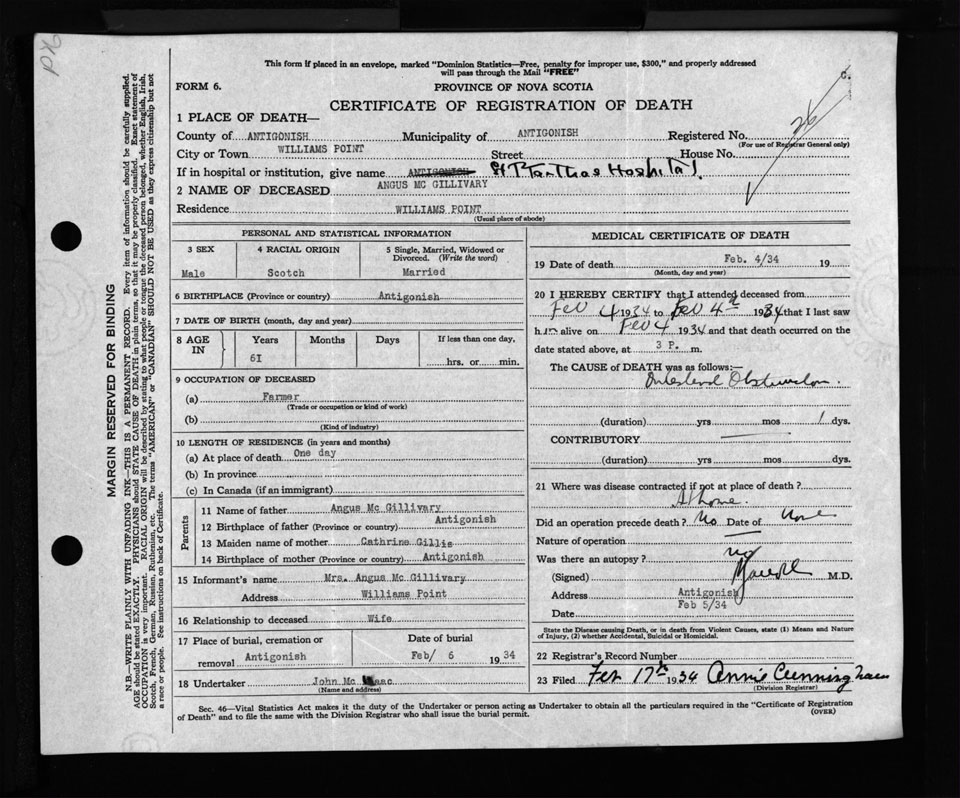 This form if placed in an envelope, marked "Dominion Statistics—Free, penalty for improper use, $300," and properly addressed
will pass through the Mail "FREE"
FORM 6.
PROVINCE OF NOVA SCOTIA
CERTIFICATE OF REGISTRATION OF DEATH
1 PLACE OF DEATH—
County of ANTIGONISH Municipality of ANTIGONISH Registered No. 26
(For use of Registrar General only)
City or Town WILLIAMS POINT Street House No.
If in hospital or institution, give name ANTIGONISH St Marthas Hospital.
2 NAME OF DECEASED ANGUS MC GILLIVARY
Residence WILLIAMS POINT
(Usual place of abode)
PERSONAL AND STATISTICAL INFORMATION
3 SEX 4 RACIAL ORIGIN 5 Single, Married, Widowed or
Divorced. (Write the word)
Male Scotch Married
6 BIRTHPLACE (Province or country) Antigonish
7 DATE OF BIRTH (month, day and year)
8 AGE IN Years Months Days If less than one day,
61 hrs. or min.
9 OCCUPATION OF DECEASED
(a) Farmer
(Trade or occupation or kind of work)
(b)
(Kind of industry)
10 LENGTH OF RESIDENCE (in years and months)
(a) At place of death One day
(b) In province
(c) In Canada (if an immigrant)
Parents
11 Name of father Angus Mc Gillivary
12 Birthplace of father (Province or country) Antigonish
13 Maiden name of mother Cathrine Gillis
14 Birthplace of mother (Province or country) Antigonish
15 Informant's name Mrs. Angus Mc Gillivary
Address Williams Point
16 Relationship to deceased Wife
17 Place of burial, cremation or Date of burial
removal Antigonish Feb/ 6 1934
18 Undertaker John Mc Isaac
(Name and address)
MEDICAL CERTIFICATE OF DEATH
19 Date of death Feb. 4/34 19
(Month, day and year)
20 I HEREBY CERTIFY that I attended deceased from
Feb 4 1934 to Feb 4th 1934 that I last saw
him alive on Feb 4 1934 and that death occurred on the
date stated above, at 3 P. m.
The CAUSE of DEATH was as follows:—
Intestinal Obstruction.
(duration) yrs mos 1 dys.
CONTRIBUTORY
(duration) yrs mos dys.
21 Where was disease contracted if not at place of death?
At home.
Did an operation precede death? No Date of None
Nature of operation
Was there an autopsy? no
(Signed) M.D.
Address Antigonish
Date Feb 5/34
State the Disease causing Death, or in death from Violent Causes, state (1) Means and Nature
of Injury, (2) whether Accidental, Suicidal or Homicidal.
22 Registrar's Record Number
23 Filed Feb 17th 1934 Annie Cunningham
(Division Registrar)
Sec. 46—Vital Statistics Act makes it the duty of the Undertaker or person acting as Undertaker to obtain all the particulars required in the "Certificate of Registration
of Death" and to file the same with the Division Registrar who shall issue the burial permit.
(OVER)
MARGIN RESERVED FOR BINDING
N.B.—WRITE PLAINLY WITH UNFADING INK—THIS IS A PERMANENT RECORD. Every item of information should be carefully supplied.
AGE should be stated EXACTLY. PHYSICIANS should STATE CAUSE OF DEATH in plain terms, so that it may be properly classified. Exact statement of
OCCUPATION is very important. RACIAL ORIGIN will be described by stating to what people or tongue the deceased person belonged, whether English, Irish,
Scotch, French, German, Russian, Ruthenian, etc. The terms "AMERICAN" or "CANADIAN" SHOULD NOT BE USED as they express citizenship but not
a race or people. See instructions on back of Certificate.